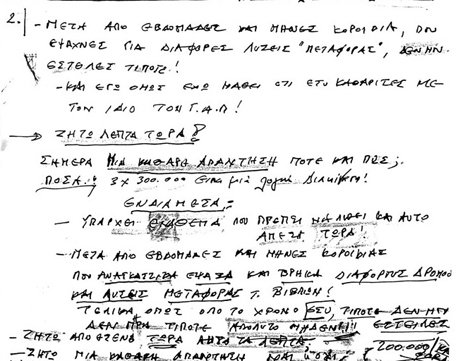 2. - ΜΕΤΑ ΑΠΟ ΕΒΔΟΜΑΔΕΣ ΚΑΙ ΜΗΝΕΣ ΚΟΡΟΪΔΙΑ, ΠΟΥ
ΕΨΑΧΝΕΣ ΓΙΑ ΔΙΑΦΟΡΕΣ ΛΥΣΕΙΣ "ΜΕΤΑΦΟΡΑΣ", ΔΕΝ ΜΗ
ΕΣΤΕΙΛΕΣ ΤΙΠΟΤΕ!
- ΚΑΙ ΕΓΩ ΟΜΩΣ ΕΧΩ ΜΑΘΕΙ ΟΤΙ ΕΣΥ ΚΑΘΑΡΙΣΕΣ ΜΕ
ΤΟΝ ΙΔΙΟ ΤΟΝ Γ.Α.Π!
→ ΖΗΤΩ ΛΕΠΤΑ ΤΩΡΑ!
ΣΗΜΕΡΑ ΜΙΑ ΚΑΘΑΡΗ ΑΠΑΝΤΗΣΗ ΠΟΤΕ ΚΑΙ ΠΩΣ;
ΠΟΣΑ: 3 x 300.000 Είναι μιά
ΕΝΔΙΑΜΕΣΑ:
- ΥΠΑΡΧΕΙ ΠΟΥ ΠΡΕΠΕΙ ΝΑ ΚΑΙ ΑΥΤΟ
ΑΜΕΣΑ ΤΩΡΑ!
- ΜΕΤΑ ΑΠΟ ΕΒΔΟΜΑΔΕΣ ΚΑΙ ΜΗΝΕΣ ΚΟΡΟΪΔΙΑΣ
ΠΟΥ ΕΨΑΞΑ ΚΑΙ ΒΡΗΚΑ ΔΙΑΦΟΡΟΥΣ ΔΡΟΜΟΥΣ
ΚΑΙ ΛΥΣΕΙΣ ΜΕΤΑΦΟΡΑΣ Τ. ΒΙΒΛΙΩΝ!
ΤΕΛΙΚΑ ΟΠΩΣ ΟΛΟ ΤΟ ΧΡΟΝΟ ΕΣΥ, ΤΙΠΟΤΕ ΔΕΝ ΜΟΥ
ΔΕΝ ΤΙΠΟΤΕ ΑΠΟΛΥΤΟ ΜΗΔΕΝ!!! ΕΣΤΕΙΛΕΣ
- ΖΗΤΩ ΑΠΟ ΕΣΕΝΑ ΤΩΡΑ ΑΥΤΟ ΤΑ ΛΕΠΤΑ. 200.000
- ΖΗΤΩ ΜΙΑ ΚΑΘΑΡΗ ΑΠΑΝΤΗΣΗ ΝΑΙ